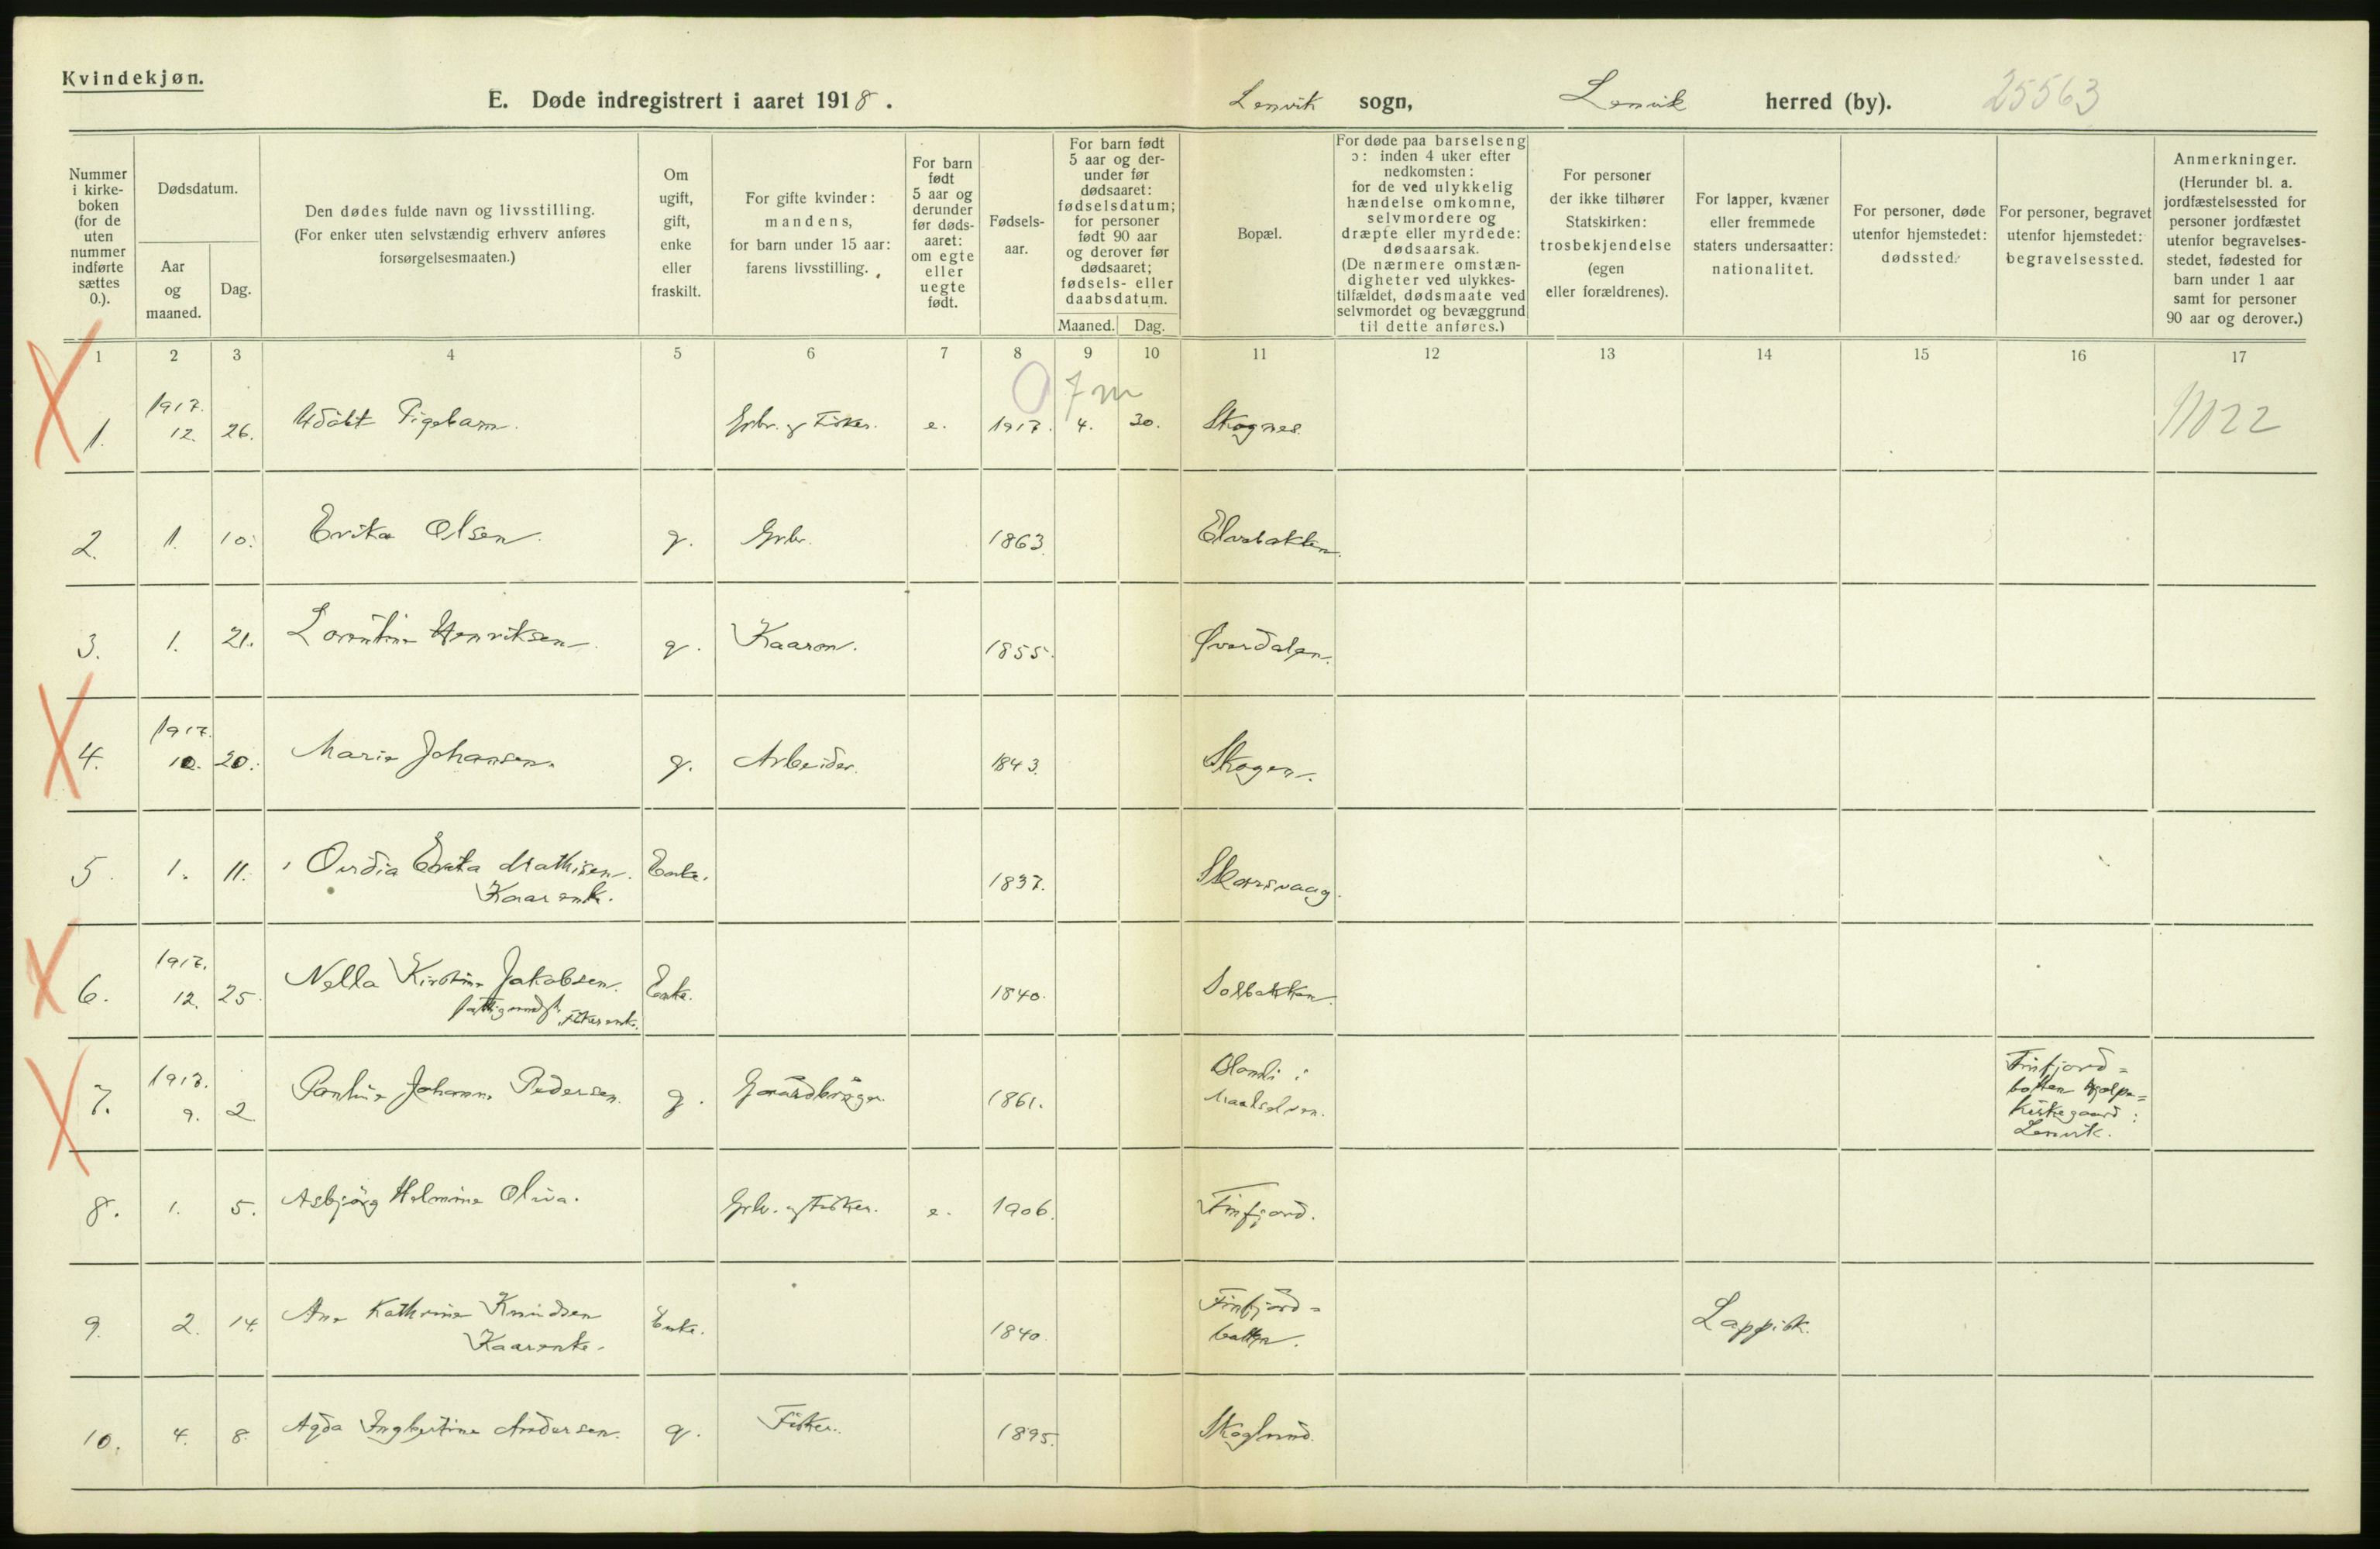 Kvindekjøn.
E. Døde indregistrert i aaret 1918. Lenvik sogn, Lenvik herred (by). 25563
Nummer i kirkeboken (for de uten nummer indførte sættes 0.).
Dødsdatum.
Aar og maaned.
Dag.
Den dødes fulde navn og livsstilling.
(For enker uten selvstændig erhverv anføres
forsørgelsesmaaten.)
Om ugift, gift, enke eller fraskilt.
For gifte kvinder:
mandens,
for barn under 15 aar:
farens livsstilling.
For barn født 5 aar og derunder før dødsaaret: om egte eller uegte født.
Fødselsaar.
For barn født 5 aar og derunder før dødsaaret: fødselsdatum; for personer født 90 aar og derover før dødsaaret; fødsels- eller daabsdatum.
Maaned. Dag.
Bopæl.
For døde paa barselseng
ɔ: inden 4 uker efter
nedkomsten:
for de ved ulykkelig
hændelse omkomne,
selvmordere og
dræpte eller myrdede:
dødsaarsak.
(De nærmere omstæn-
digheter ved ulykkes-
tilfældet, dødsmaate ved
selvmordet og bevæggrund
til dette anføres.)
For personer
der ikke tilhører
Statskirken:
trosbekjendelse
(egen
eller forældrenes).
For lapper, kvæner
eller fremmede
staters undersaatter:
nationalitet.
For personer, døde
utenfor hjemstedet:
dødssted.
For personer, begravet
utenfor hjemstedet:
begravelsessted.
Anmerkninger.
(Herunder bl. a.
jordfæstelsessted for
personer jordfæstet
utenfor begravelses-
stedet, fødested for
barn under 1 aar
samt for personer
90 aar og derover.)
1 2 3 4 5 6 7 8 9 10 11 12 13 14 15 16 17
0 7 m
1917.
1. 12. 26. Udöbt Pigebarn. Grbr. og Fisker. e. 1917. 4. 30. Skognes. 11022
2. 1. 10. Erika Olsen. g. Grbr. 1863. Elvebakken.
3. 1. 21. Lorentine Henriksen. g. Kaarm. 1855. Øverdalen.
1917.
4. 20. Marie Johansen. g. Arbeider. 1843. Skogen.
5. 1. 11. Ovidia Erika Mathisen. Enke. 1837. Skorsvaag.
Kaarenke.
1917.
6. 12. 25. Nella Kirstine Jakobsen. Enke. 1840. Solbakken.
fattigunderst. Fiskerenke.
1917.
7. 9. 2. Pauline Johanne Pedersen. g. Gaardbruger. 1861. Olsmdi i
Maalselven.
Finfjord=
botten hjælpe=
kirkegaard i
Lenvik.
8. 1. 5. Asbjörg Helmine Oliva. Grbr. og Fisker. e. 1906. Finfjord.
9. 2. 14. Ane Kathrine Knudsen Enke. 1840. Finfjord=
Kaarenke. botten. Lappisk.
10. 4. 8. Agda Ingbertine Andersen. g. Fisker. 1895. Skoglund.